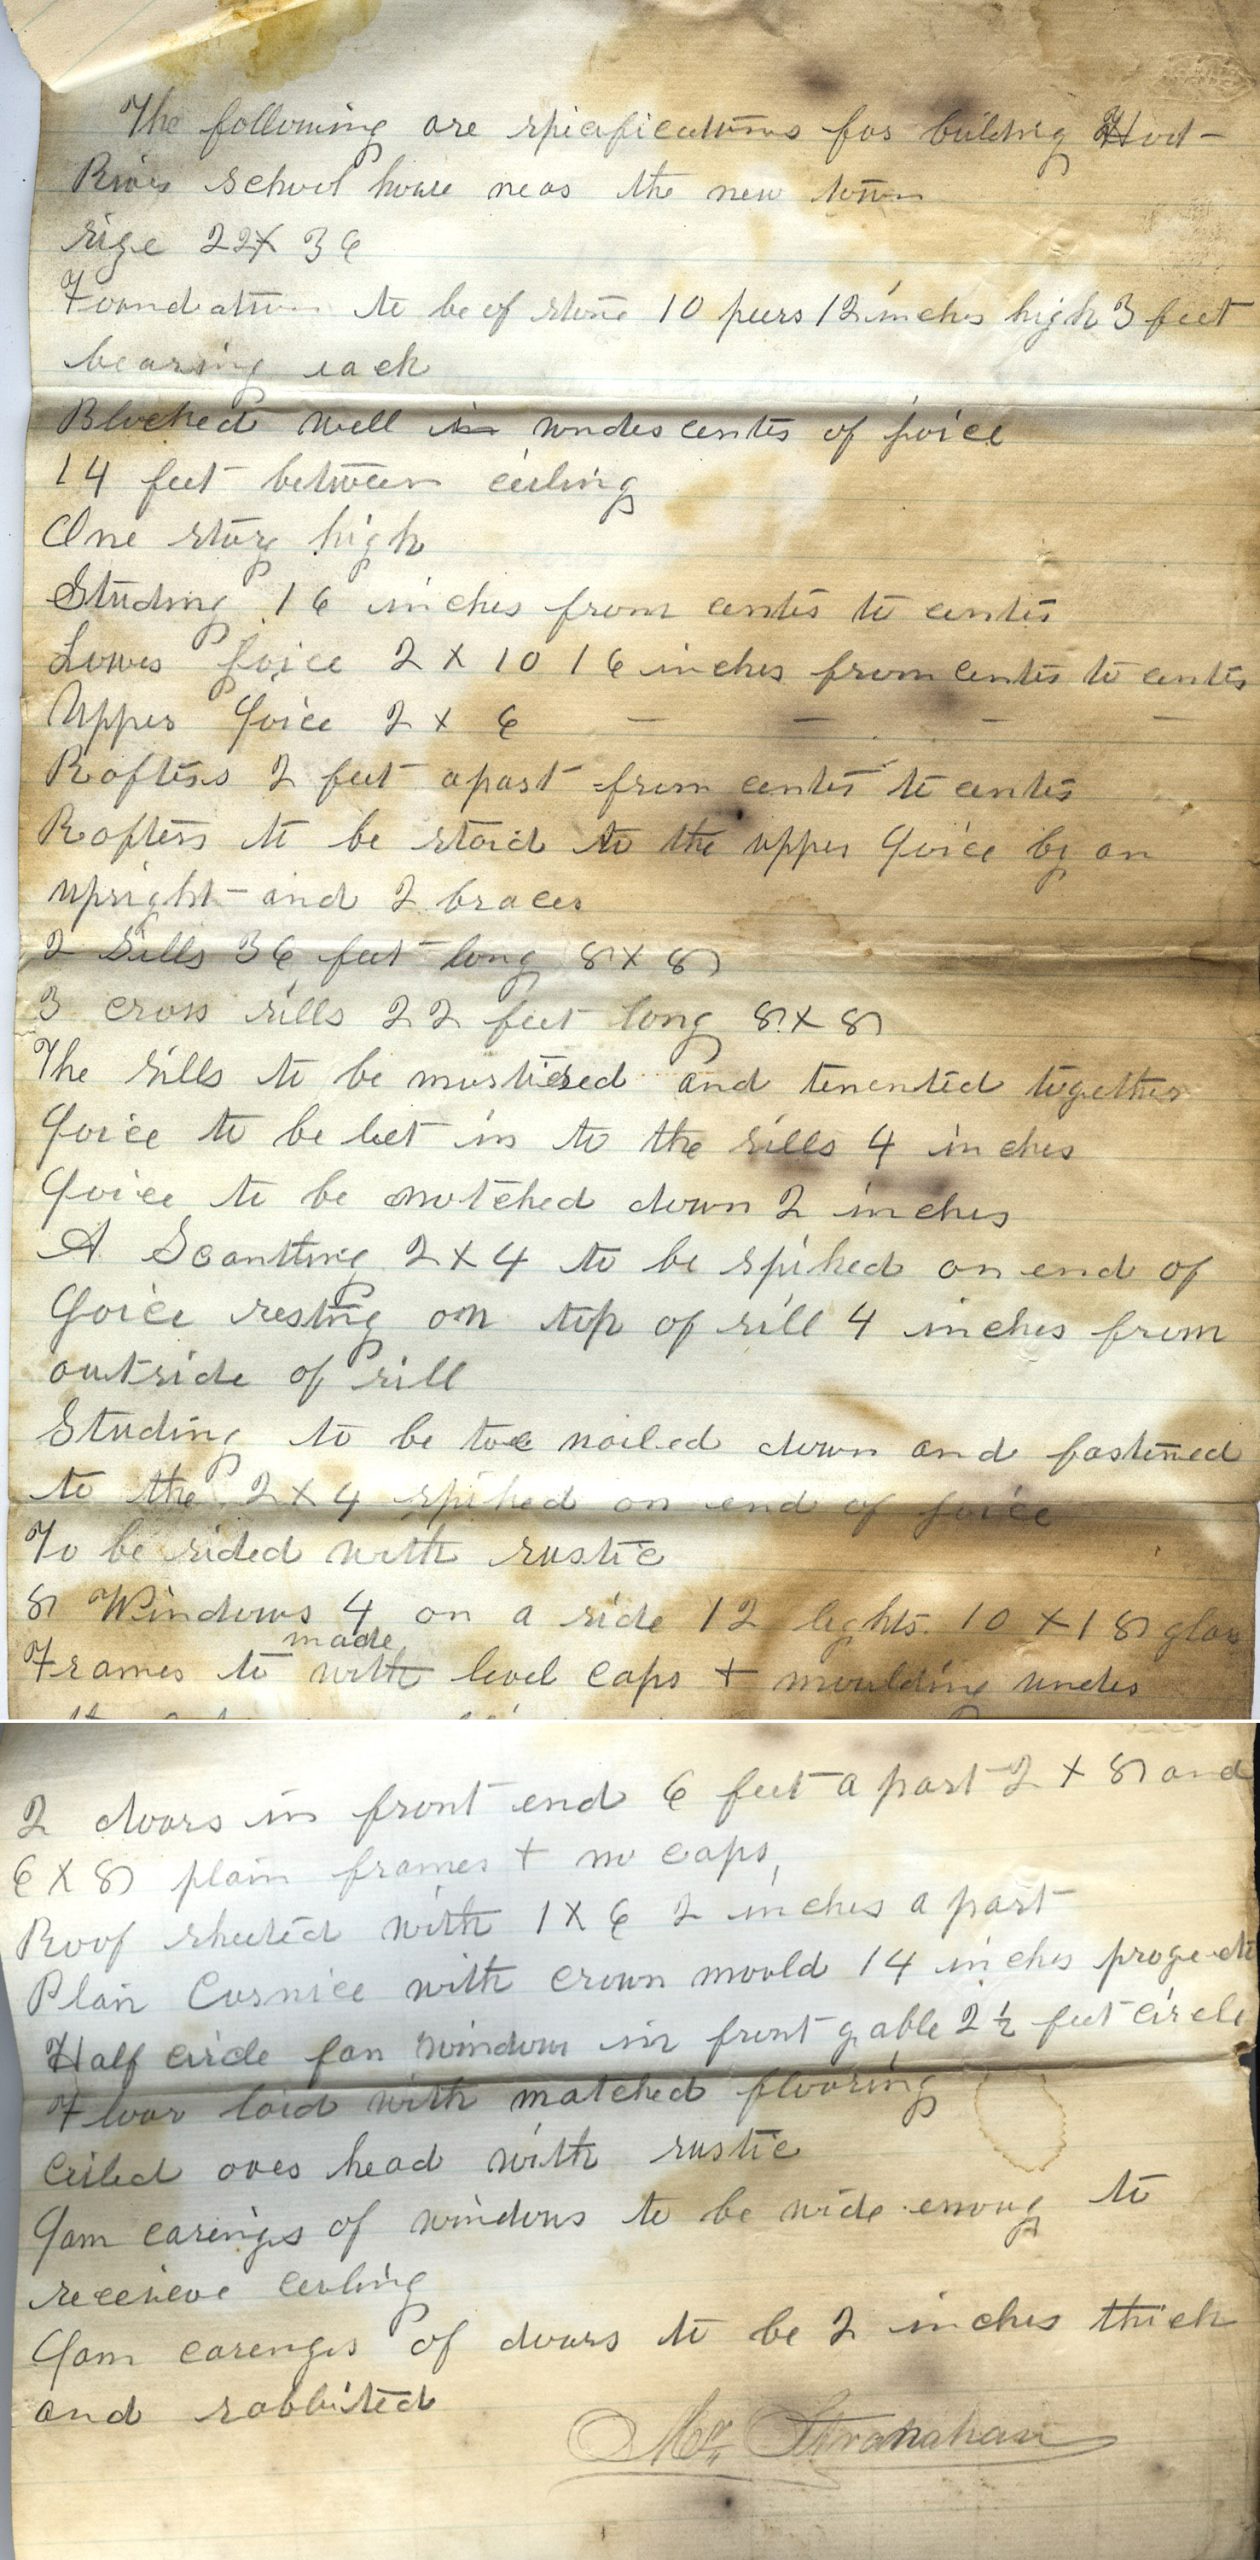 The following are spicificatiions for building Hood
River school house near the new town
size 22 x 36
Foundation to be of stone 10 peers 12 inches high 3 feet
bearing each
Blocked well in under center of joice
14 feet between ceiling
One story high
Studing 16 inches from center to center
Lower joice 2 x 10 16 inches from center to center
Upper Joice 2 x 6 — — — —
Rafters 2 feet apart from center to center
Rafters to be staid to the upper Joice by an
upright and 2 braces
2 Sills 36 feet long 8 x 8
3 cross sills 22 feet long 8 x 8
The sills to be mortiesed and tenented together
Joice to be let in to the sills 4 inches
Joice to be notched down 2 inches
A Scantling 2 x 4 to be spiked on end of
Joice resting on top of sill 4 inches from
outside of sill
Studing to be toe nailed down and fastened
to the 2 x 4 spiked on end of joice
To be sided with rustic
8 Windows 4 on a side 12 lights 10 x 18 glass
Frames to made with level caps + moulding under
2 doors in front end 6 feet apart 2 x 8 and
6 x 8 plain frames + no caps,
Roof sheeted with 1 x 6 2 inches a part
Plain Cornice with crown mould 14 inches
Half circle fan window in front gable 2 ½ feet circle
Floor laid with matched flooring
Ceiled over head with rustic
Jam casings of windows to be wide enoug to
receieve ceiling
Jam casengs of doors to be 2 inches thick
and rabbited
Mr Stranahan